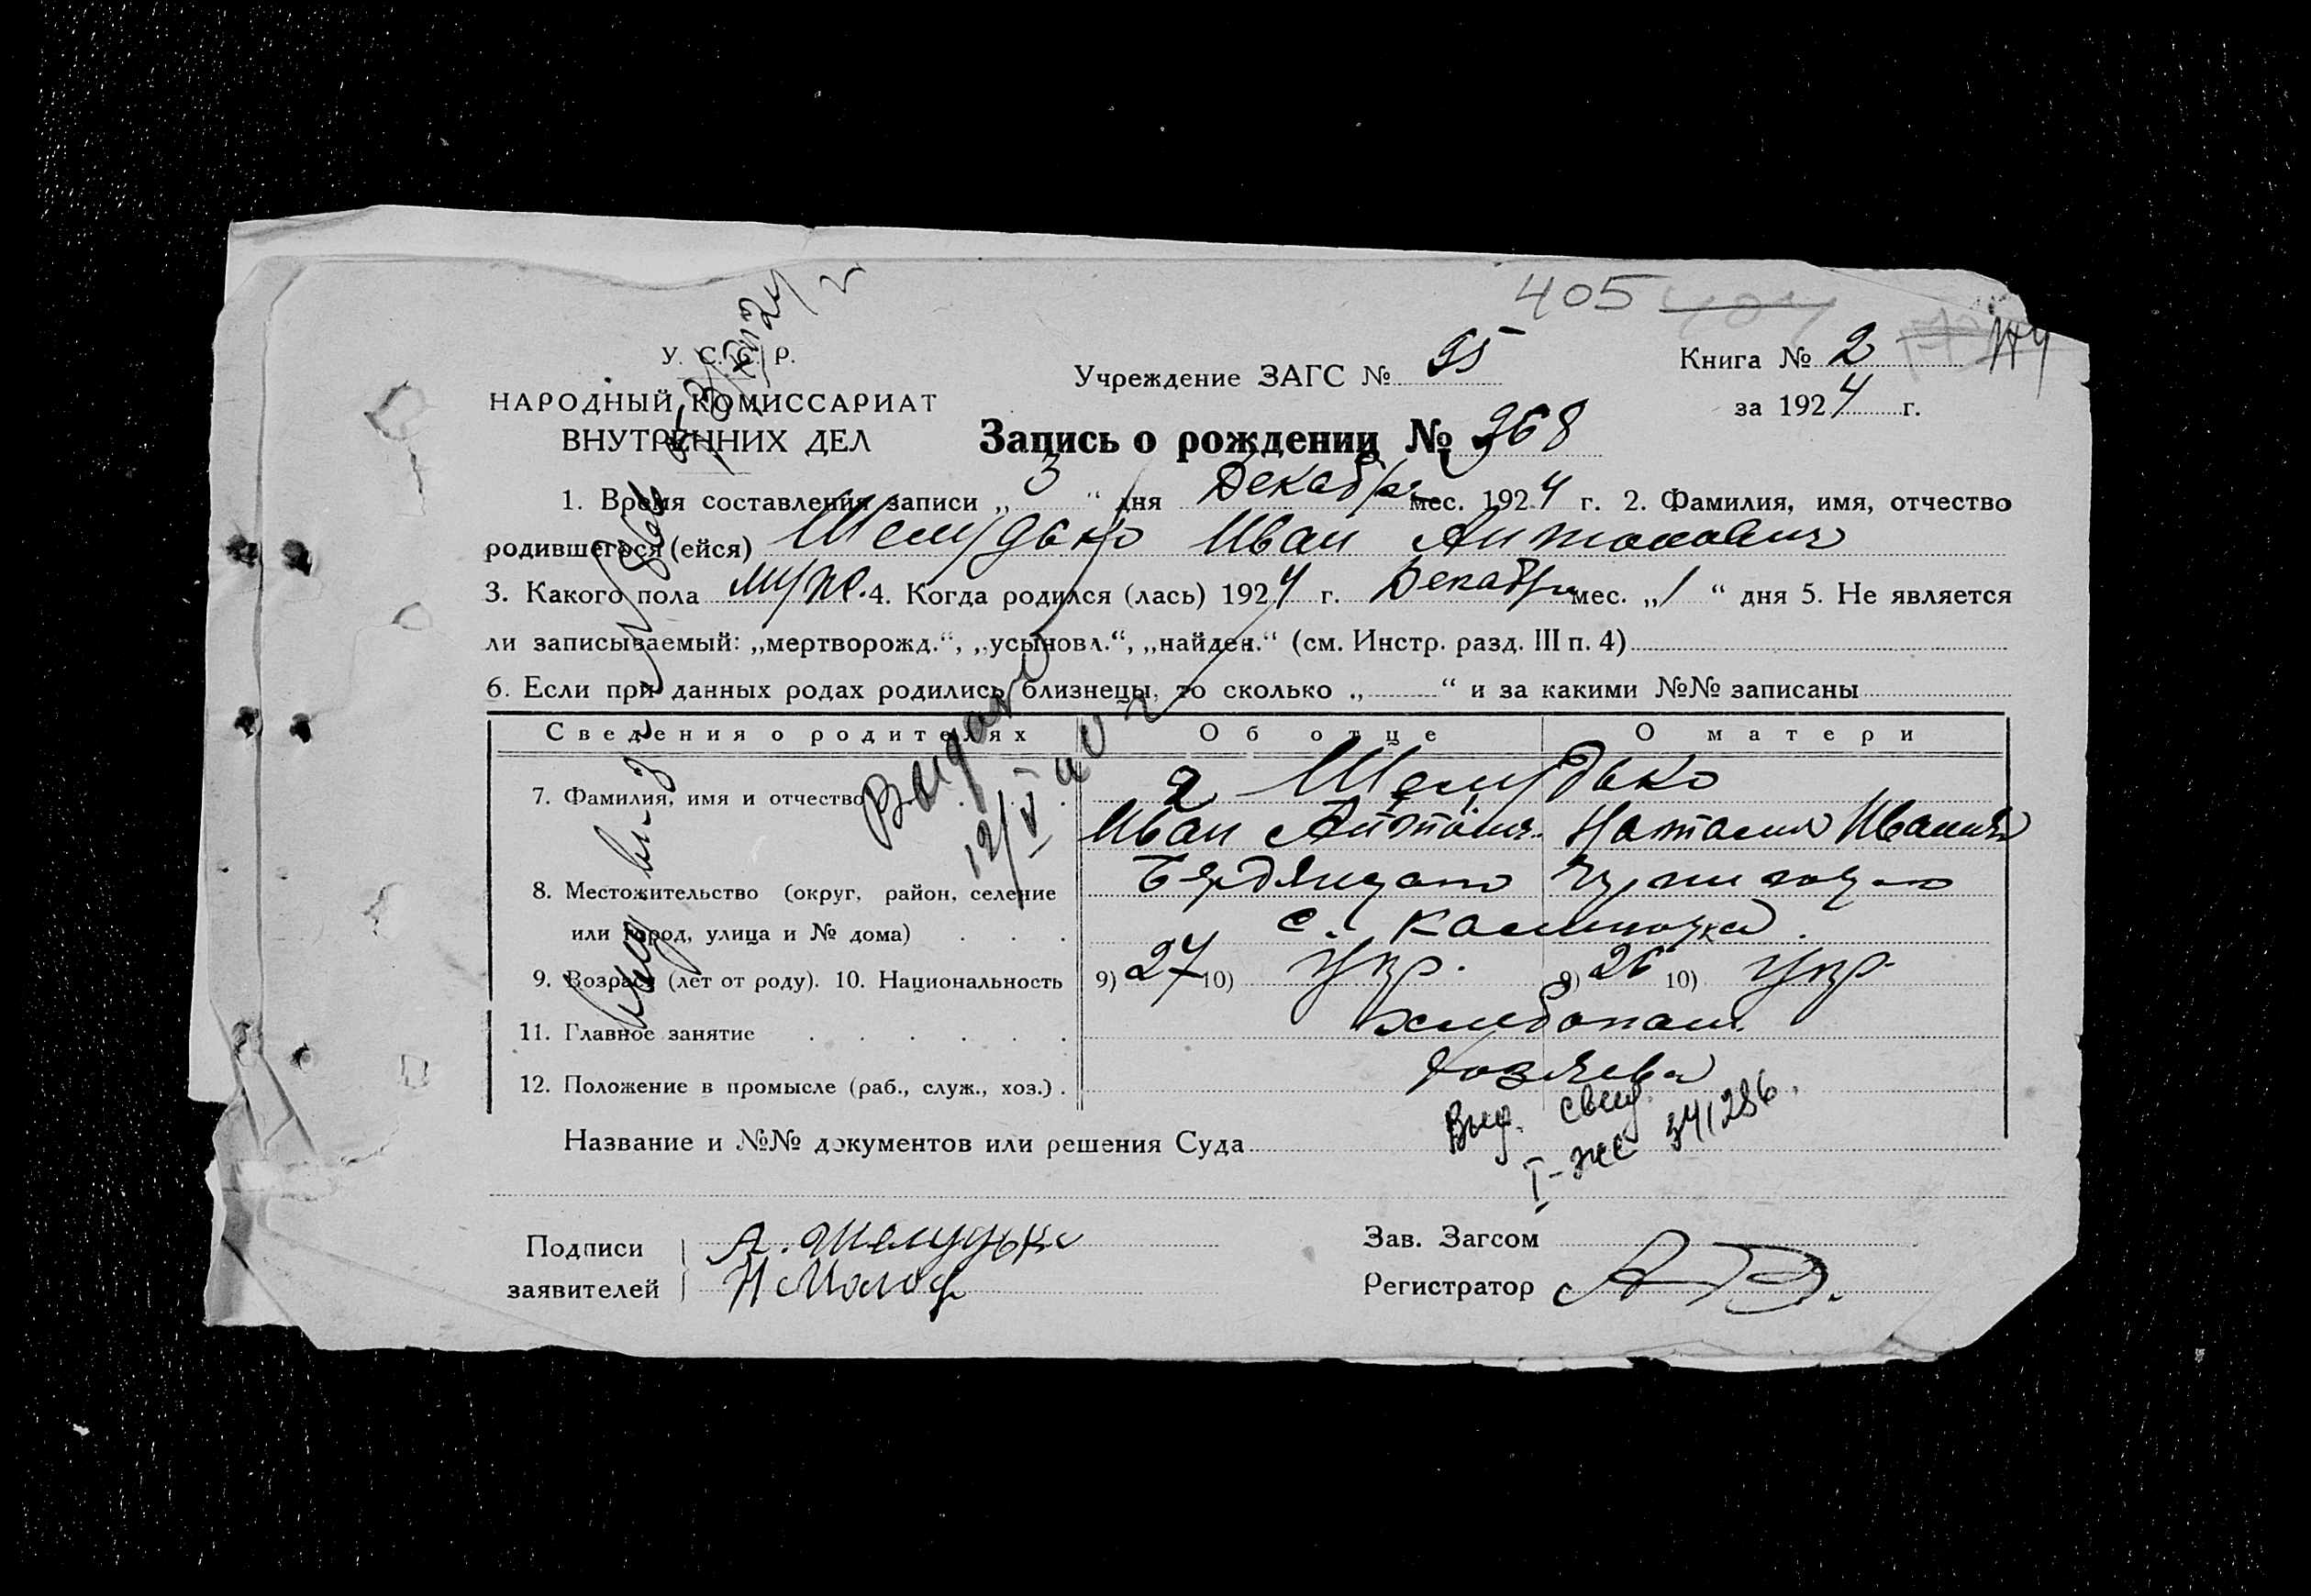 405 404
У. С. С. Р.
НАРОДНЫЙ КОМИССАРИАТ
ВНУТРЕННИХ ДЕЛ
Учреждение ЗАГС № 95
Книга № 2
за 1924 г.
Запись о рождении № 368
1. Время составления записи „ 3 “ дня Декабря мес. 1924 г. 2. Фамилия, имя, отчество
родившегося (ейся) Шелудько Иван Антонович
3. Какого пола муж. 4. Когда родился (лась) 1924 г. Декабря мес. „ 1 “ дня 5. Не является
ли записываемый: „мертворожд.“, „усыновл.“, „найден.“ (см. Инстр. разд. III п. 4)
6. Если при данных родах родились близнецы, то сколько „ “ и за какими №№ записаны
Сведения о родителях Об отце О матери
7. Фамилия, имя и отчество Шелудько
Иван Антон Наталия Ивановна
8. Местожительство (округ, район, селение
или город, улица и № дома) с.
9. Возраст (лет от роду). 10. Национальность 9) 27 10) Укр. 9) 26 10) Укр.
11. Главное занятие хлебопаш.
12. Положение в промысле (раб., служ., хоз.) Хозяева
Название и №№ документов или решения Суда
Выд. свид.
I-ЖЕ 341286.
Выдано
12/V 40 г
Подписи
заявителей
А. Шелудько
Зав. Загсом
Регистратор